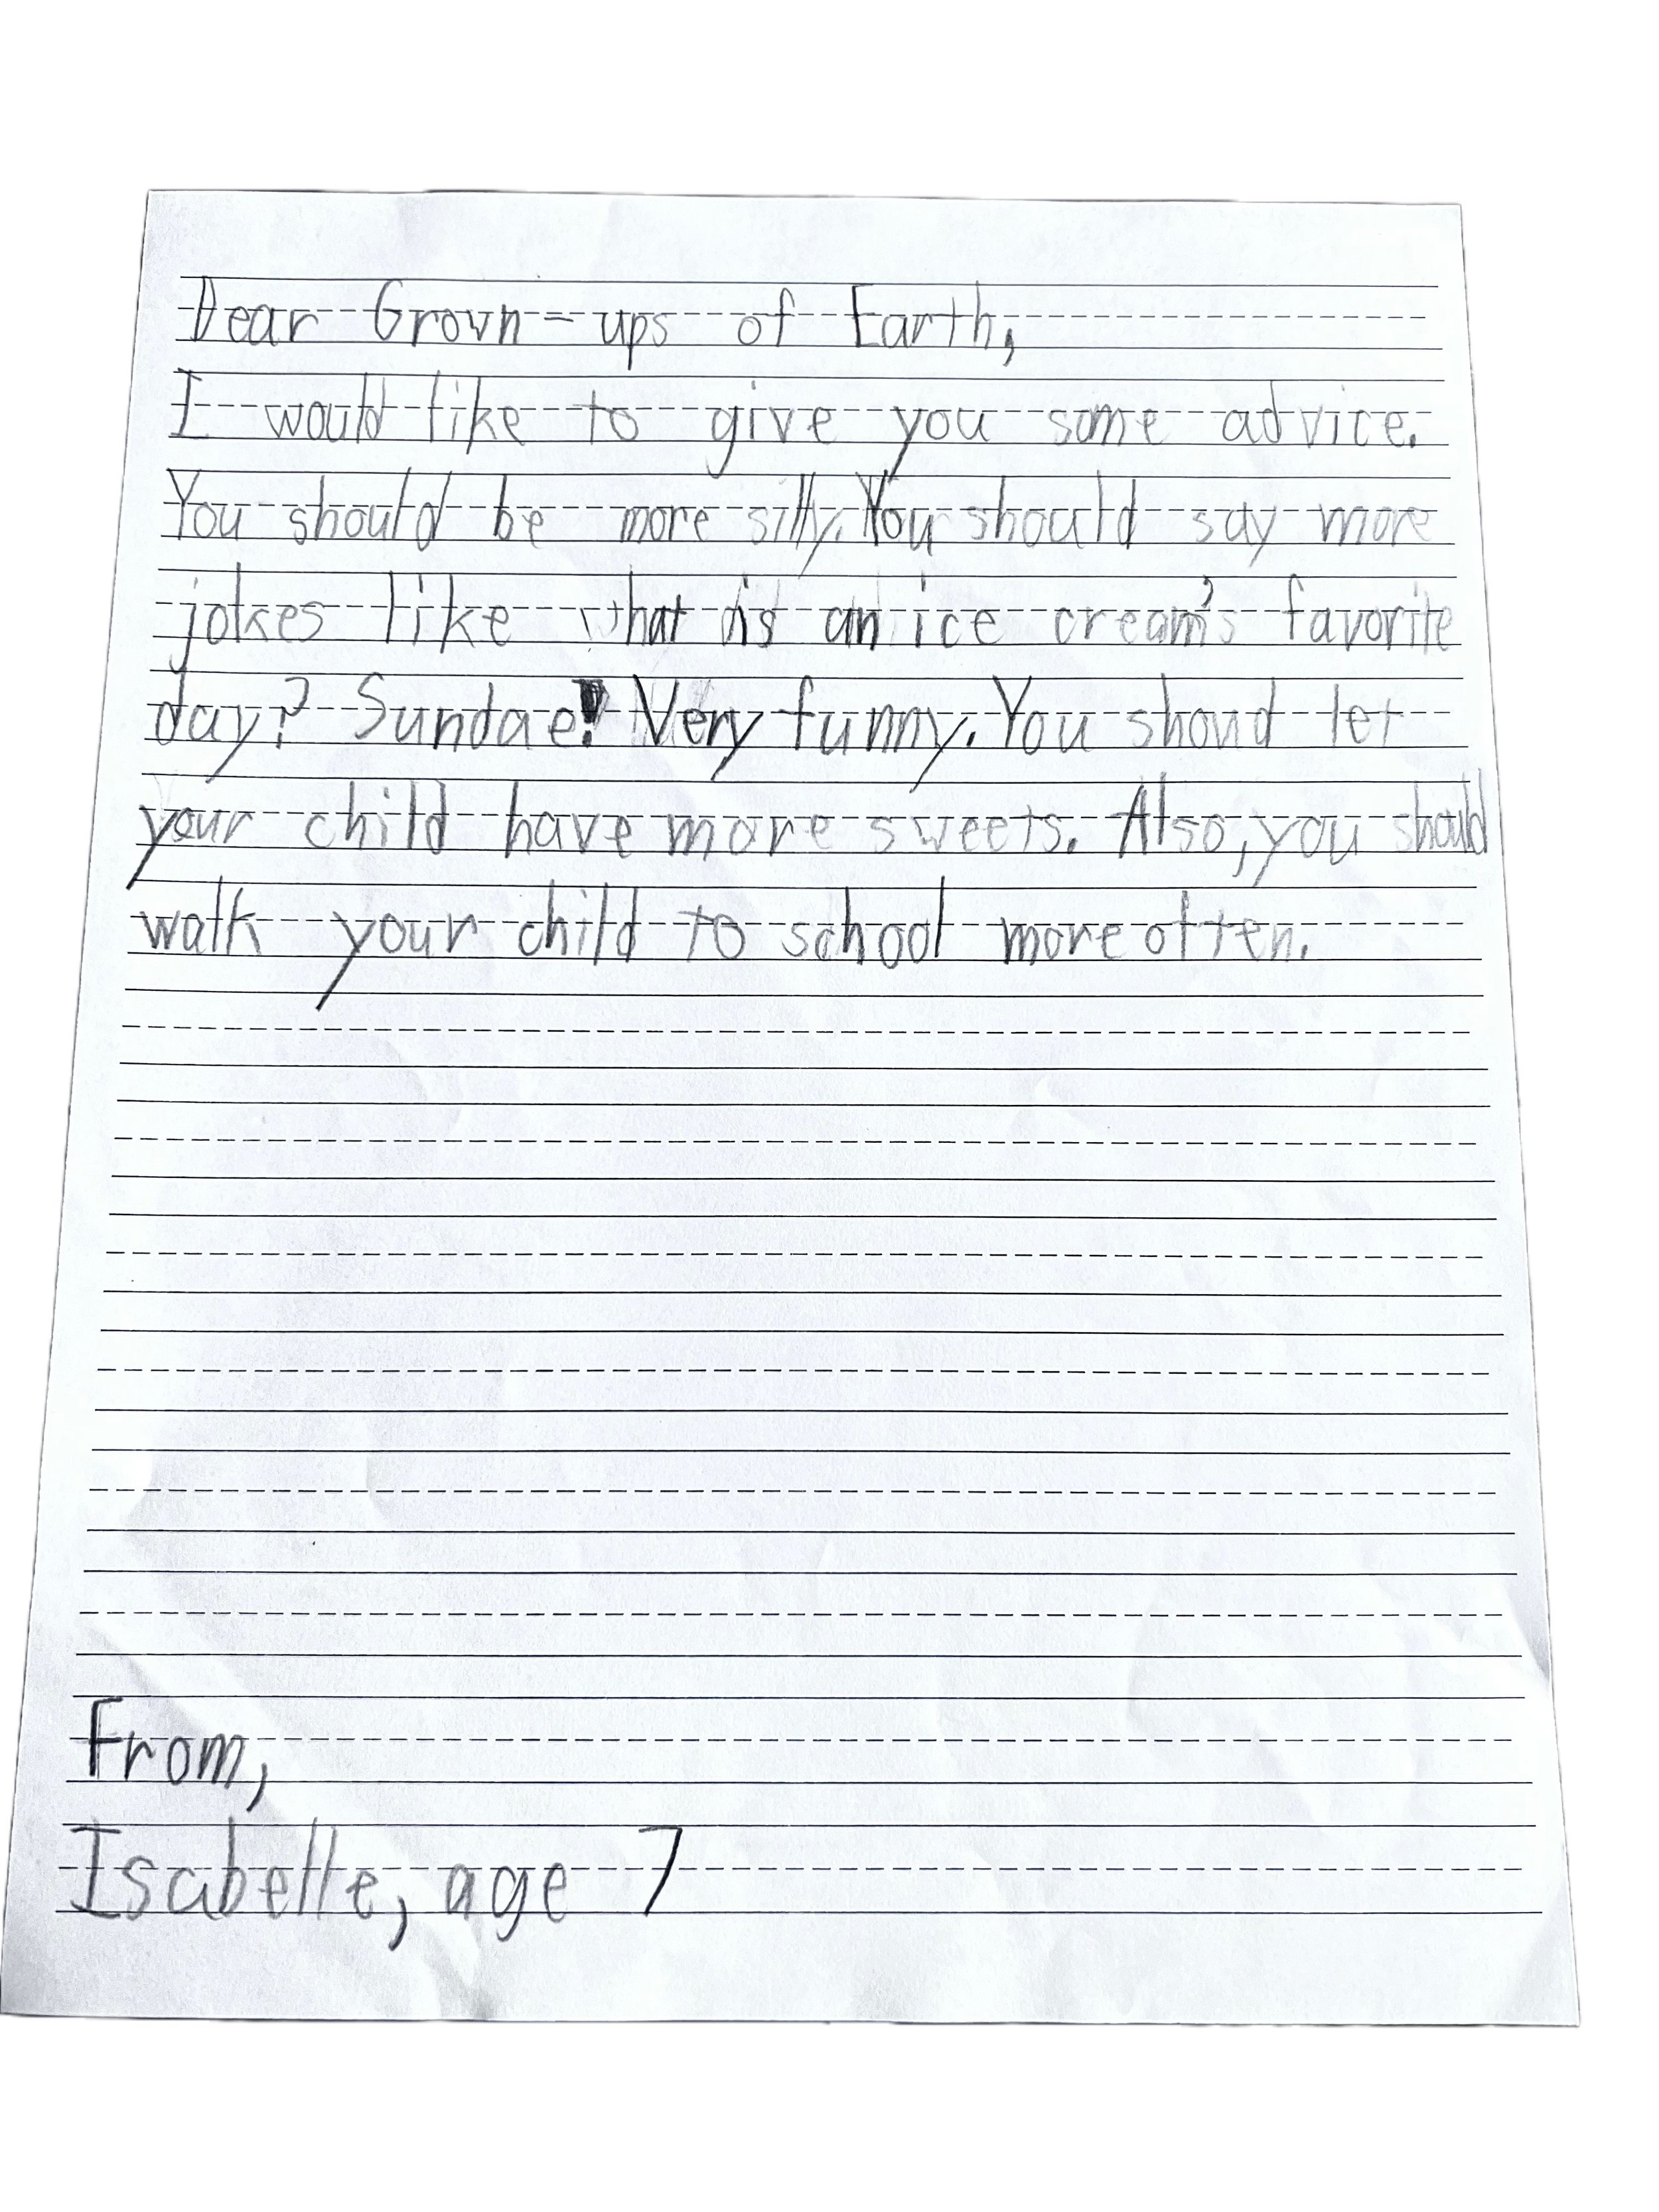 Dear Grown-ups of Earth,
I would like to give you some advice.
You should be more silly. You should say more
jokes like what is an ice cream's favorite
day? Sundae! Very funny. You shoud let
your child have more sweets. Also, you should
walk your child to school more often.
From,
Isabelle, age 7